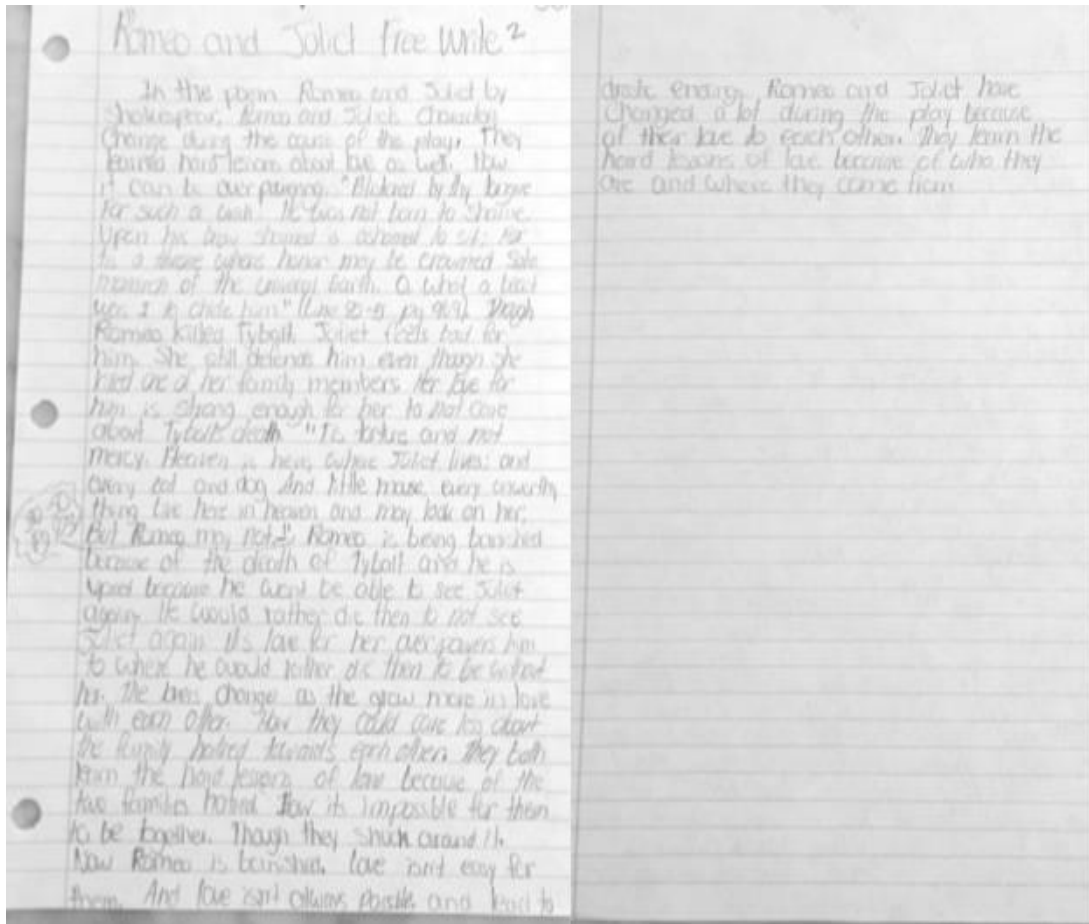 Romeo and Juliet Free Write 2
In the poem Romeo and Juliet by
Shakespear, Romeo and Juliets
Change during the course of the play. They
learned hard lessons about love as well. How
it can be over powering. "Blistered by thy tongue
For such a wish. He was not born to shame.
Upon his brow shamed is ashamed to sit; For
tis a throne where honor may be crowned Sole
monarch of the universal Earth. O what a beast
was I to chide him" (Line 90-5 pg 969). Though
Romeo killed Tybalt. Juliet feels bad for
him. She still defends him even though she
killed one of her family members. Her love for
him is strong enough for her to not care
about Tybalts death "Tis tortue and not
mercy. Heaven is here, where Juliet lives; and
every cat and dog And little mouse every unworthy
thing live here in heaven and may look on her,
But Romeo may not." Romeo is being banished
because of the death of Tybalt and he is
upset because he wont be able to see Juliet
again. He would rather die then to not see
Juliet again. His love for her overpowers him
to where he would rather die then to be without
her. The change as the grow more in love
with each other. How they could care less about
the family hatred towards each other. they both
learn the hard lessons of love because of the
two families hatred How its impossible for them
to be together. Though they snuck around it.
Now Romeo is banished. love isnt easy for
them. And love isnt always possible and lead to
ending. Romeo and Juliet have
Changed a lot during the play because
of their love to each other. They learn the
hard lessons of love because of who they
are and where they come from